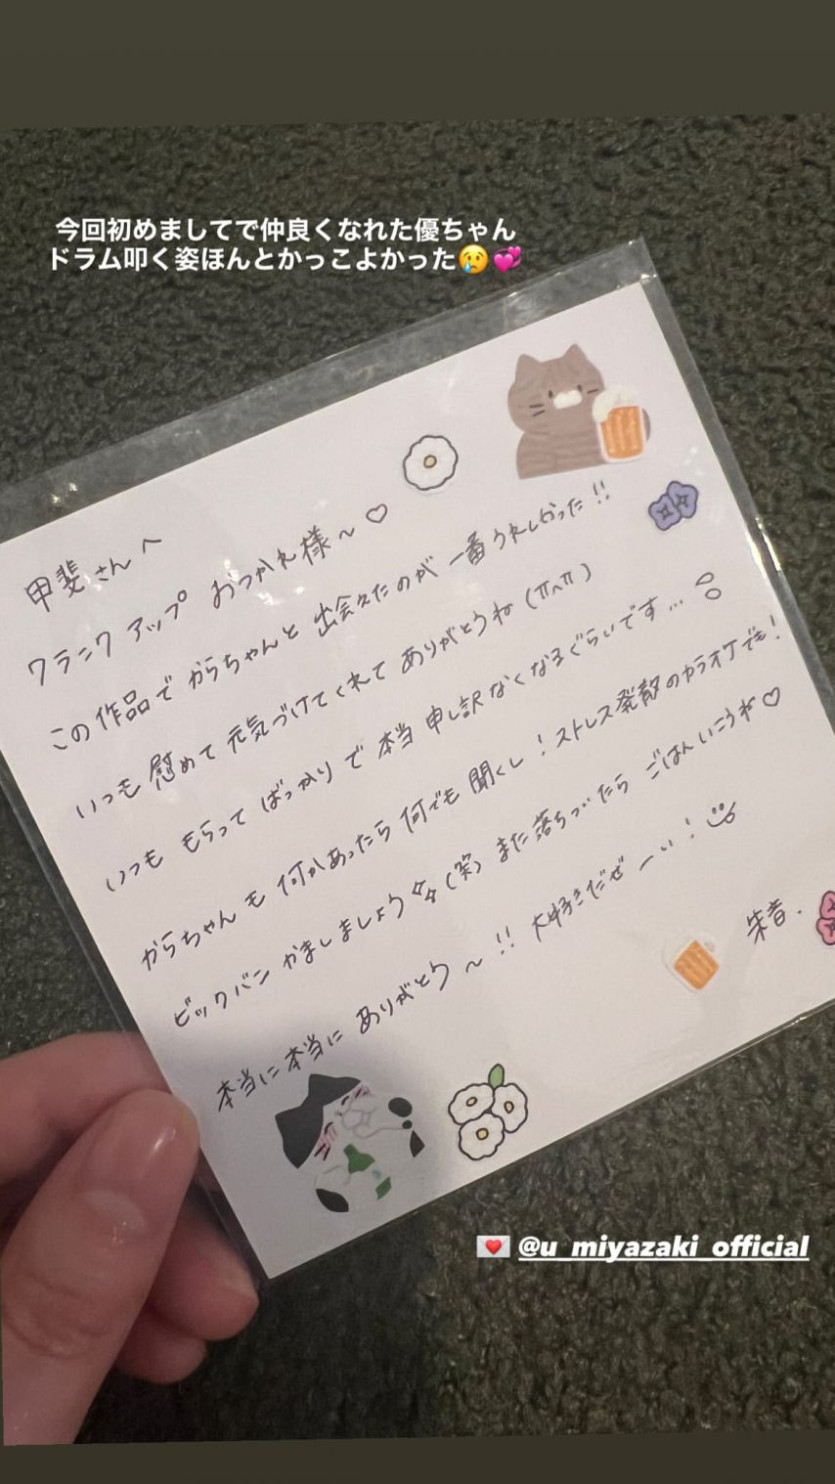 今回初めましてで仲良くなれた優ちゃん
ドラム叩く姿ほんとかっこよかった😢💞
甲斐さんへ
クランクアップ おつかれ様〜♡
この作品で からちゃんと 出会えたのが 一番うれしかった!!
いつも 慰めて 元気づけてくれて ありがとうね(ΠへΠ)
いつも もらって ばっかりで 本当 申し訳なくなるぐらいです...
からちゃんも 何かあったら 何でも 聞くし!ストレス発散のカラオケでも!
ビックバン かましましょう(笑) また 落ちついたら ごはんいこうね♡
本当に本当に ありがとう〜!! 大好きだぜーい!
朱音.
💌 @u_miyazaki_official